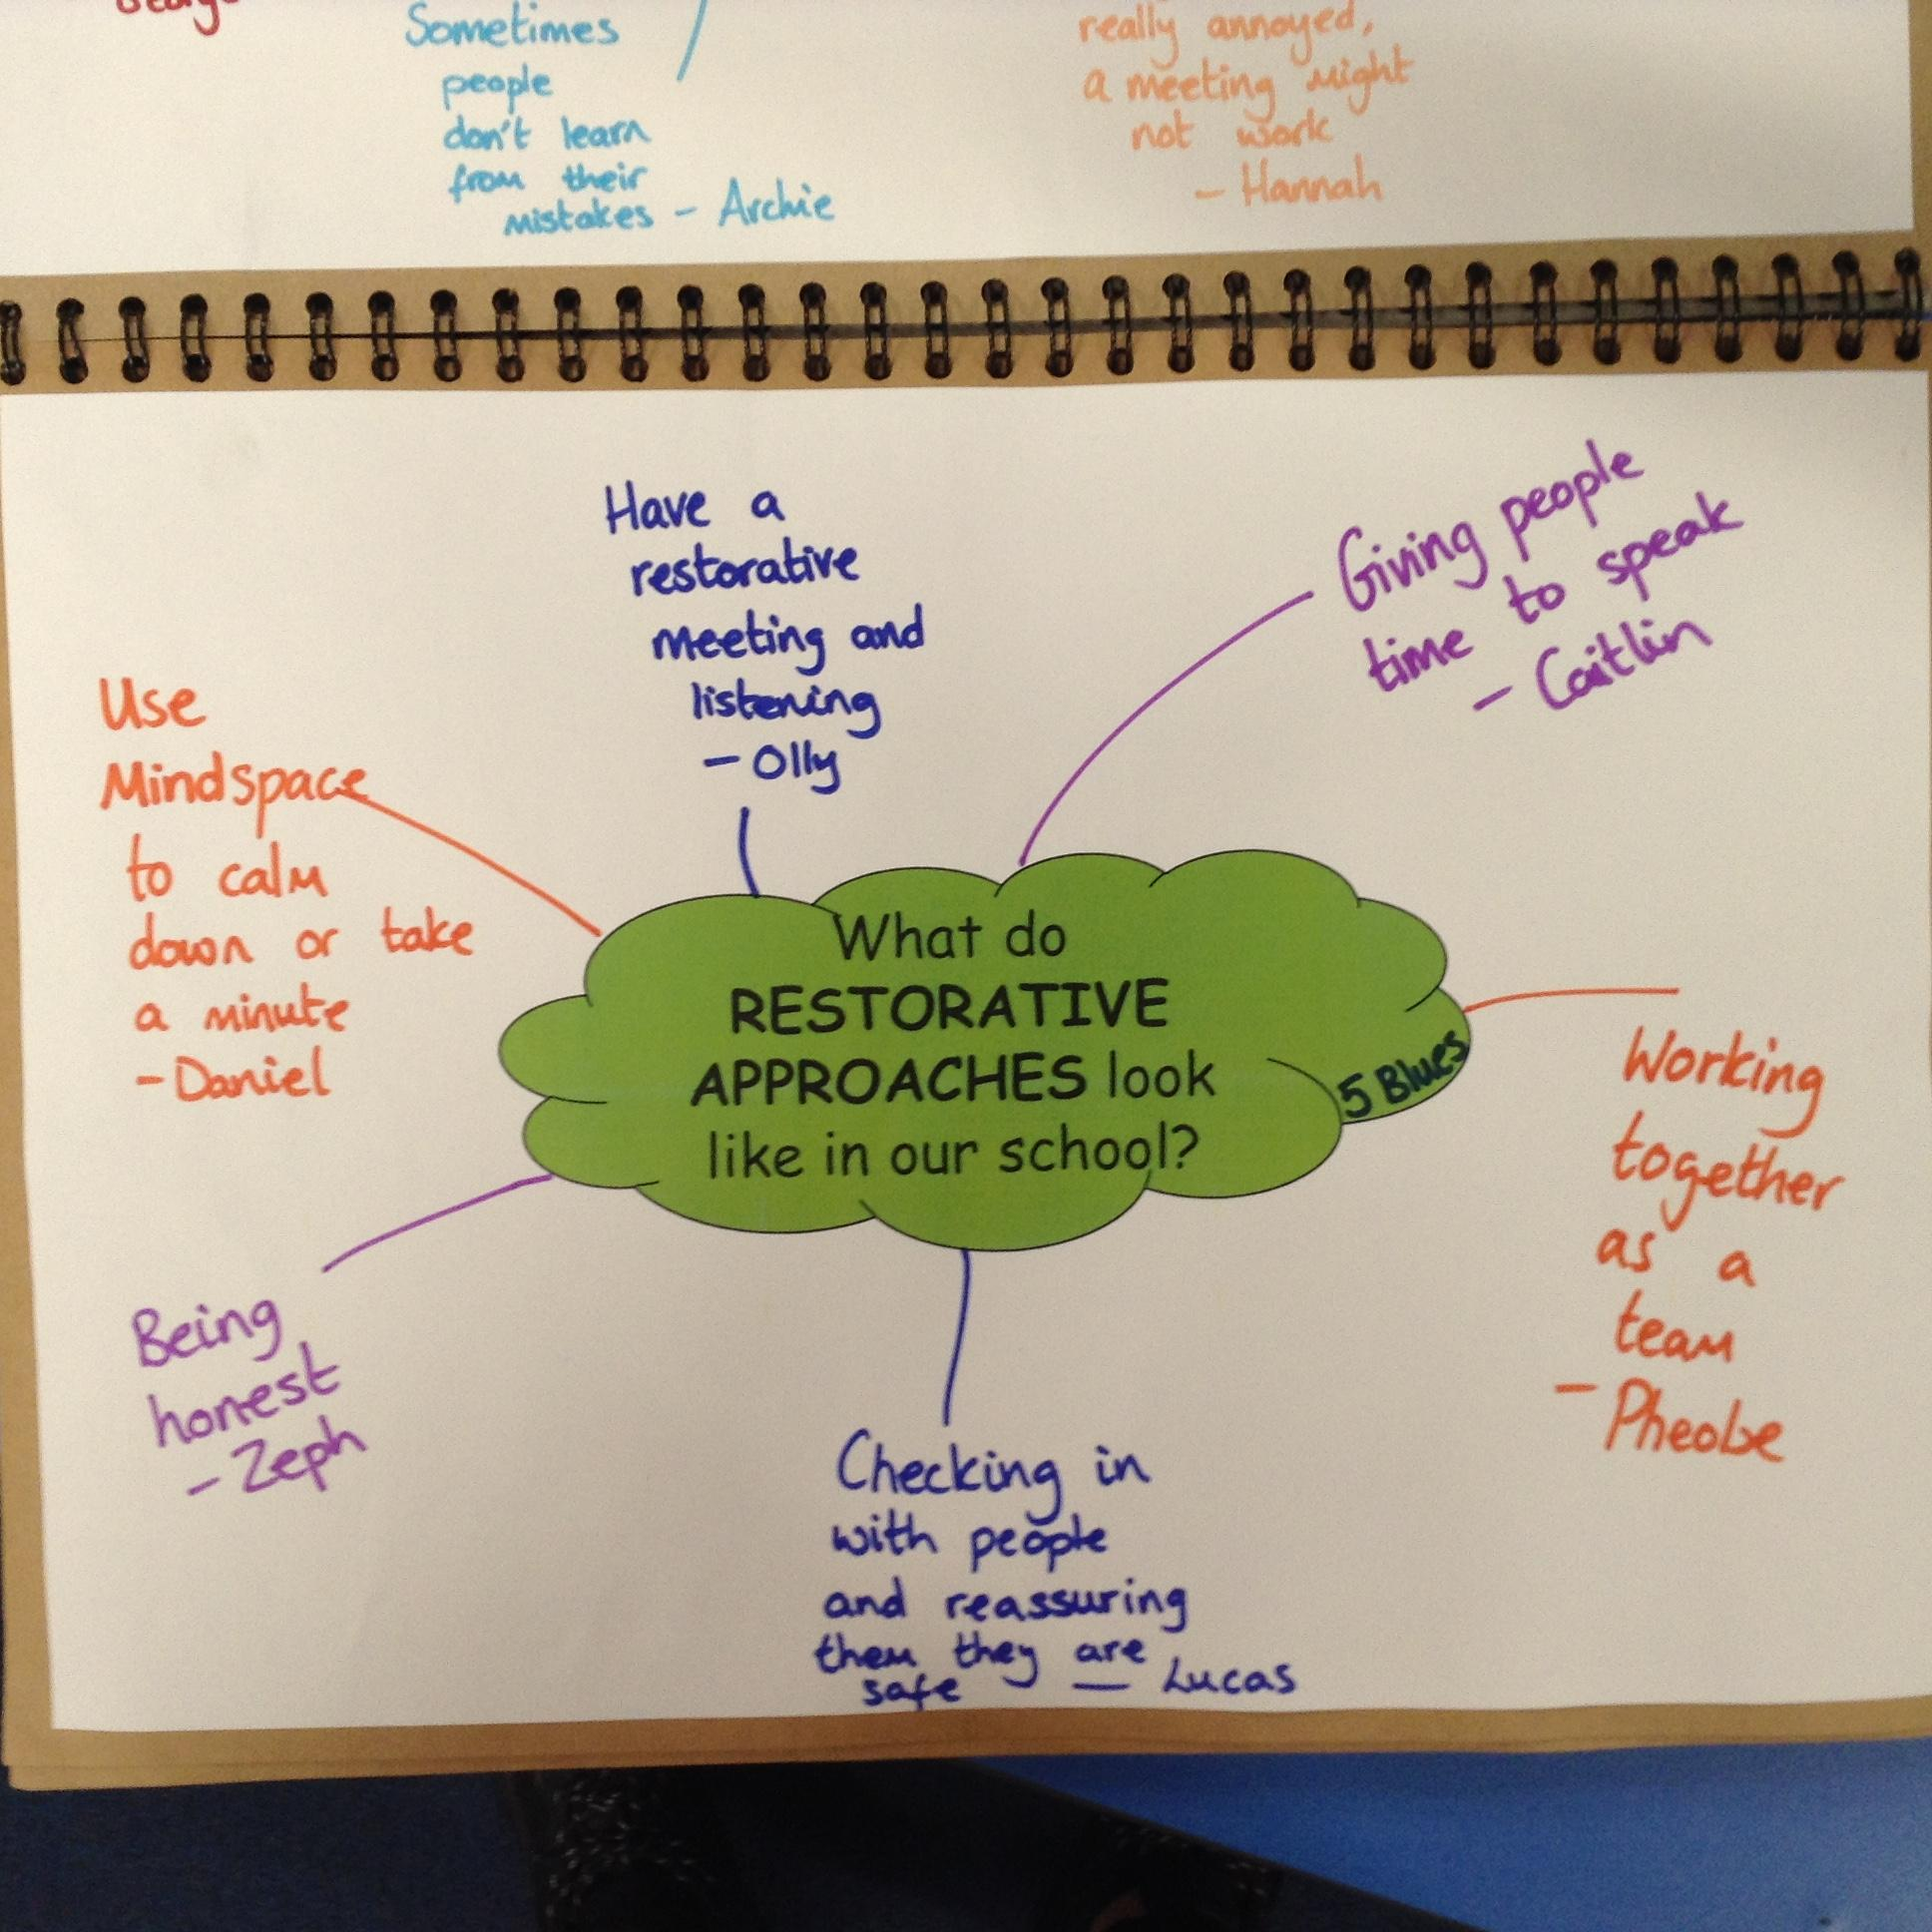 Sometimes
people
don't learn
from their
mistakes - Archie
really annoyed,
a meeting might
not work
- Hannah
Have a
restorative
meeting and
listening
- Olly
Giving people
time to speak
- Caitlin
Use
Mindspace
to calm
down or take
a minute
- Daniel
What do
RESTORATIVE
APPROACHES look
like in our school?
5 Blues
Working
together
as a
team
- Pheobe
Being
honest
- Zeph
Checking in
with people
and reassuring
them they are
safe - Lucas